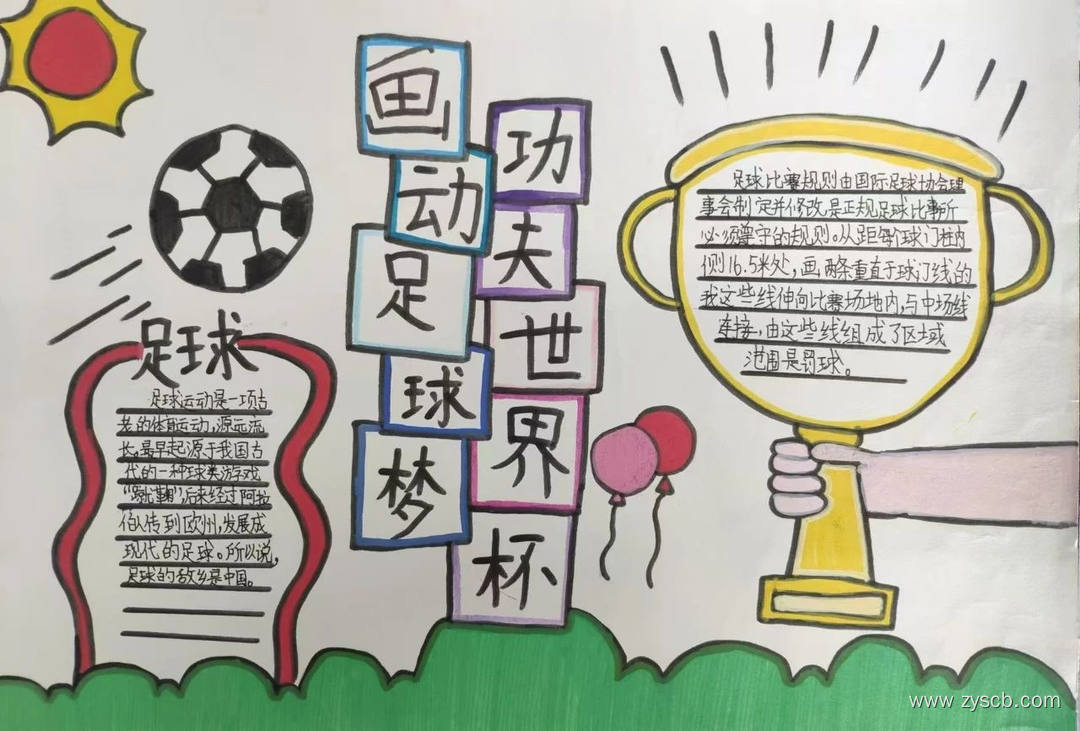 画动足球梦
功夫世界杯
足球
足球运动是一项古
老的体育运动,源远流
长,最早起源于我国古
代的一种球类游戏
“蹴鞠”,后来经过阿拉
伯人传到欧州,发展成
现代的足球。所以说,
足球的故乡是中国。
足球比赛规则由国际足球协会理
事会制定并修改,是正规足球比赛所
必须遵守的规则。从距每个球门柱内
侧16.5米处,画两条垂直于球门线的
线这些线伸向比赛场地内,与中场线
连接,由这些线组成了区域
范围是罚球。
www.zyscb.com